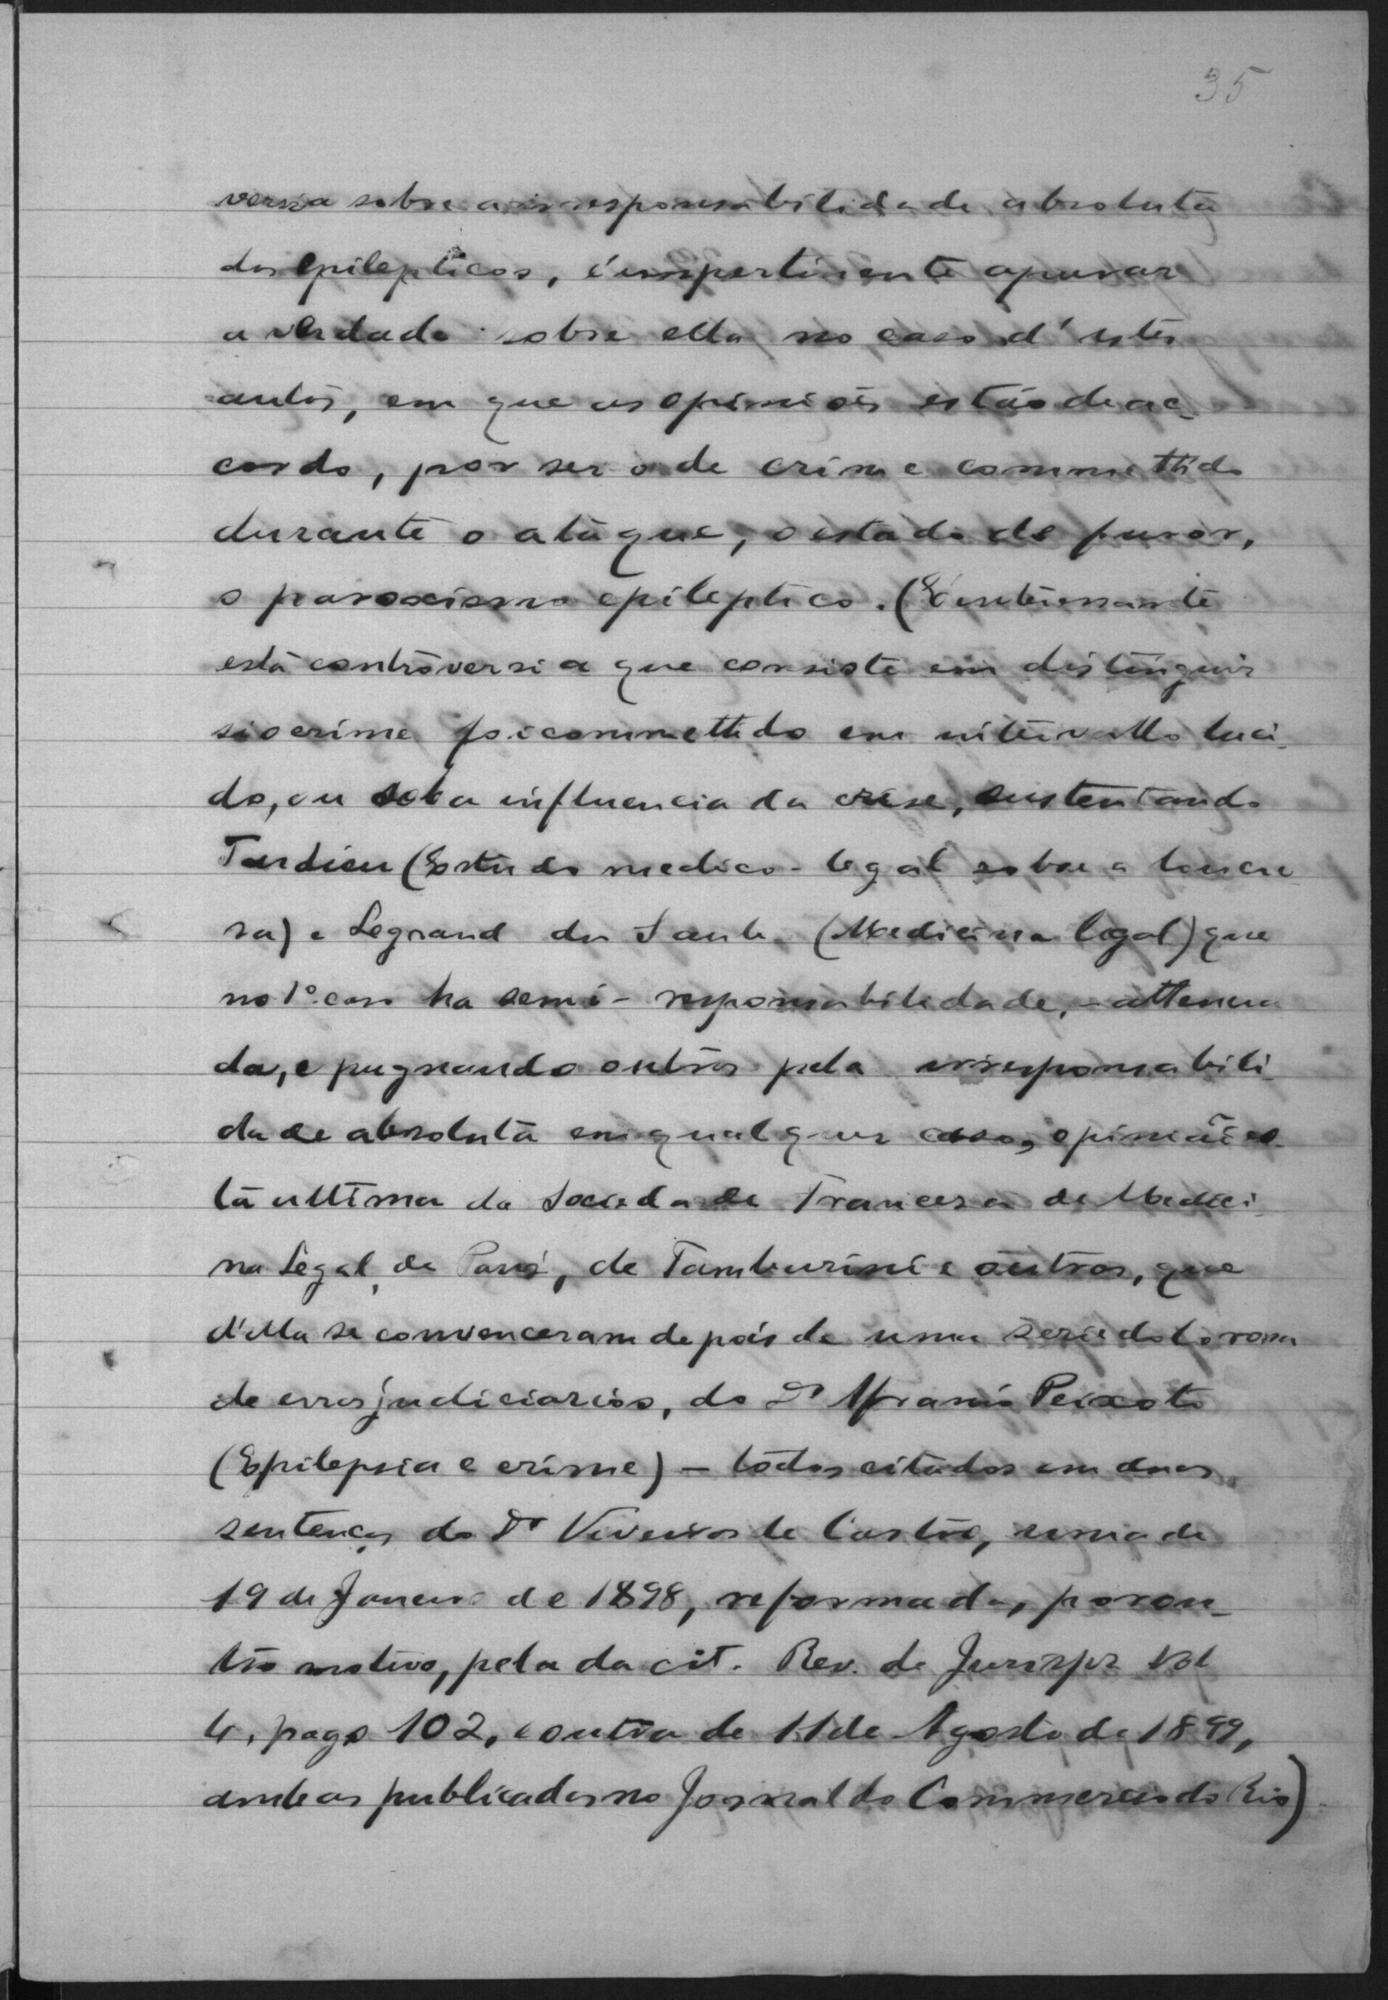 35
versia sobre a irresponsabilidade absoluta
dos epilepticos, é impertinente apurar
a verdade sobre ella no caso d'estes
autos, em que as opiniões estão de ac-
cordo, por ser o de crime commettido
durante o ataque, o estado de furor,
o paroxismo epileptico. (É interessante
esta controversia que consiste em distinguir
si o crime foi commettido em intervallo luci-
do, ou sob a influencia da crise, sustentando
Tardieu (Estudo medico-legal sobre a loucu-
ra) e Legrand du Saule (Medicina legal) que
no 1º caso ha semi-responsabilidade, - attenua
da, e pugnando outros pela irresponsabili-
dade absoluta em qualquer caso, opinião es-
ta ultima da Sociedade Franceza de Medici-
na Legal, de Paris, de Tamburini e outros, que
d'ella se convenceram depois de uma serie dolorosa
de erros judiciarios, do Dr Afranio Peixoto
(Epilepsia e crime) - todos citados em duas
sentenças do Dr Viveiros de Castro, uma de
19 de Janeiro de 1898, reformada, por ou-
tro motivo, pela da cit. Rev. de Jurispr. Vol
4, pags 102, e outra de 11 de Agosto de 1899,
ambas publicadas no Jornal do Commercio do Rio)